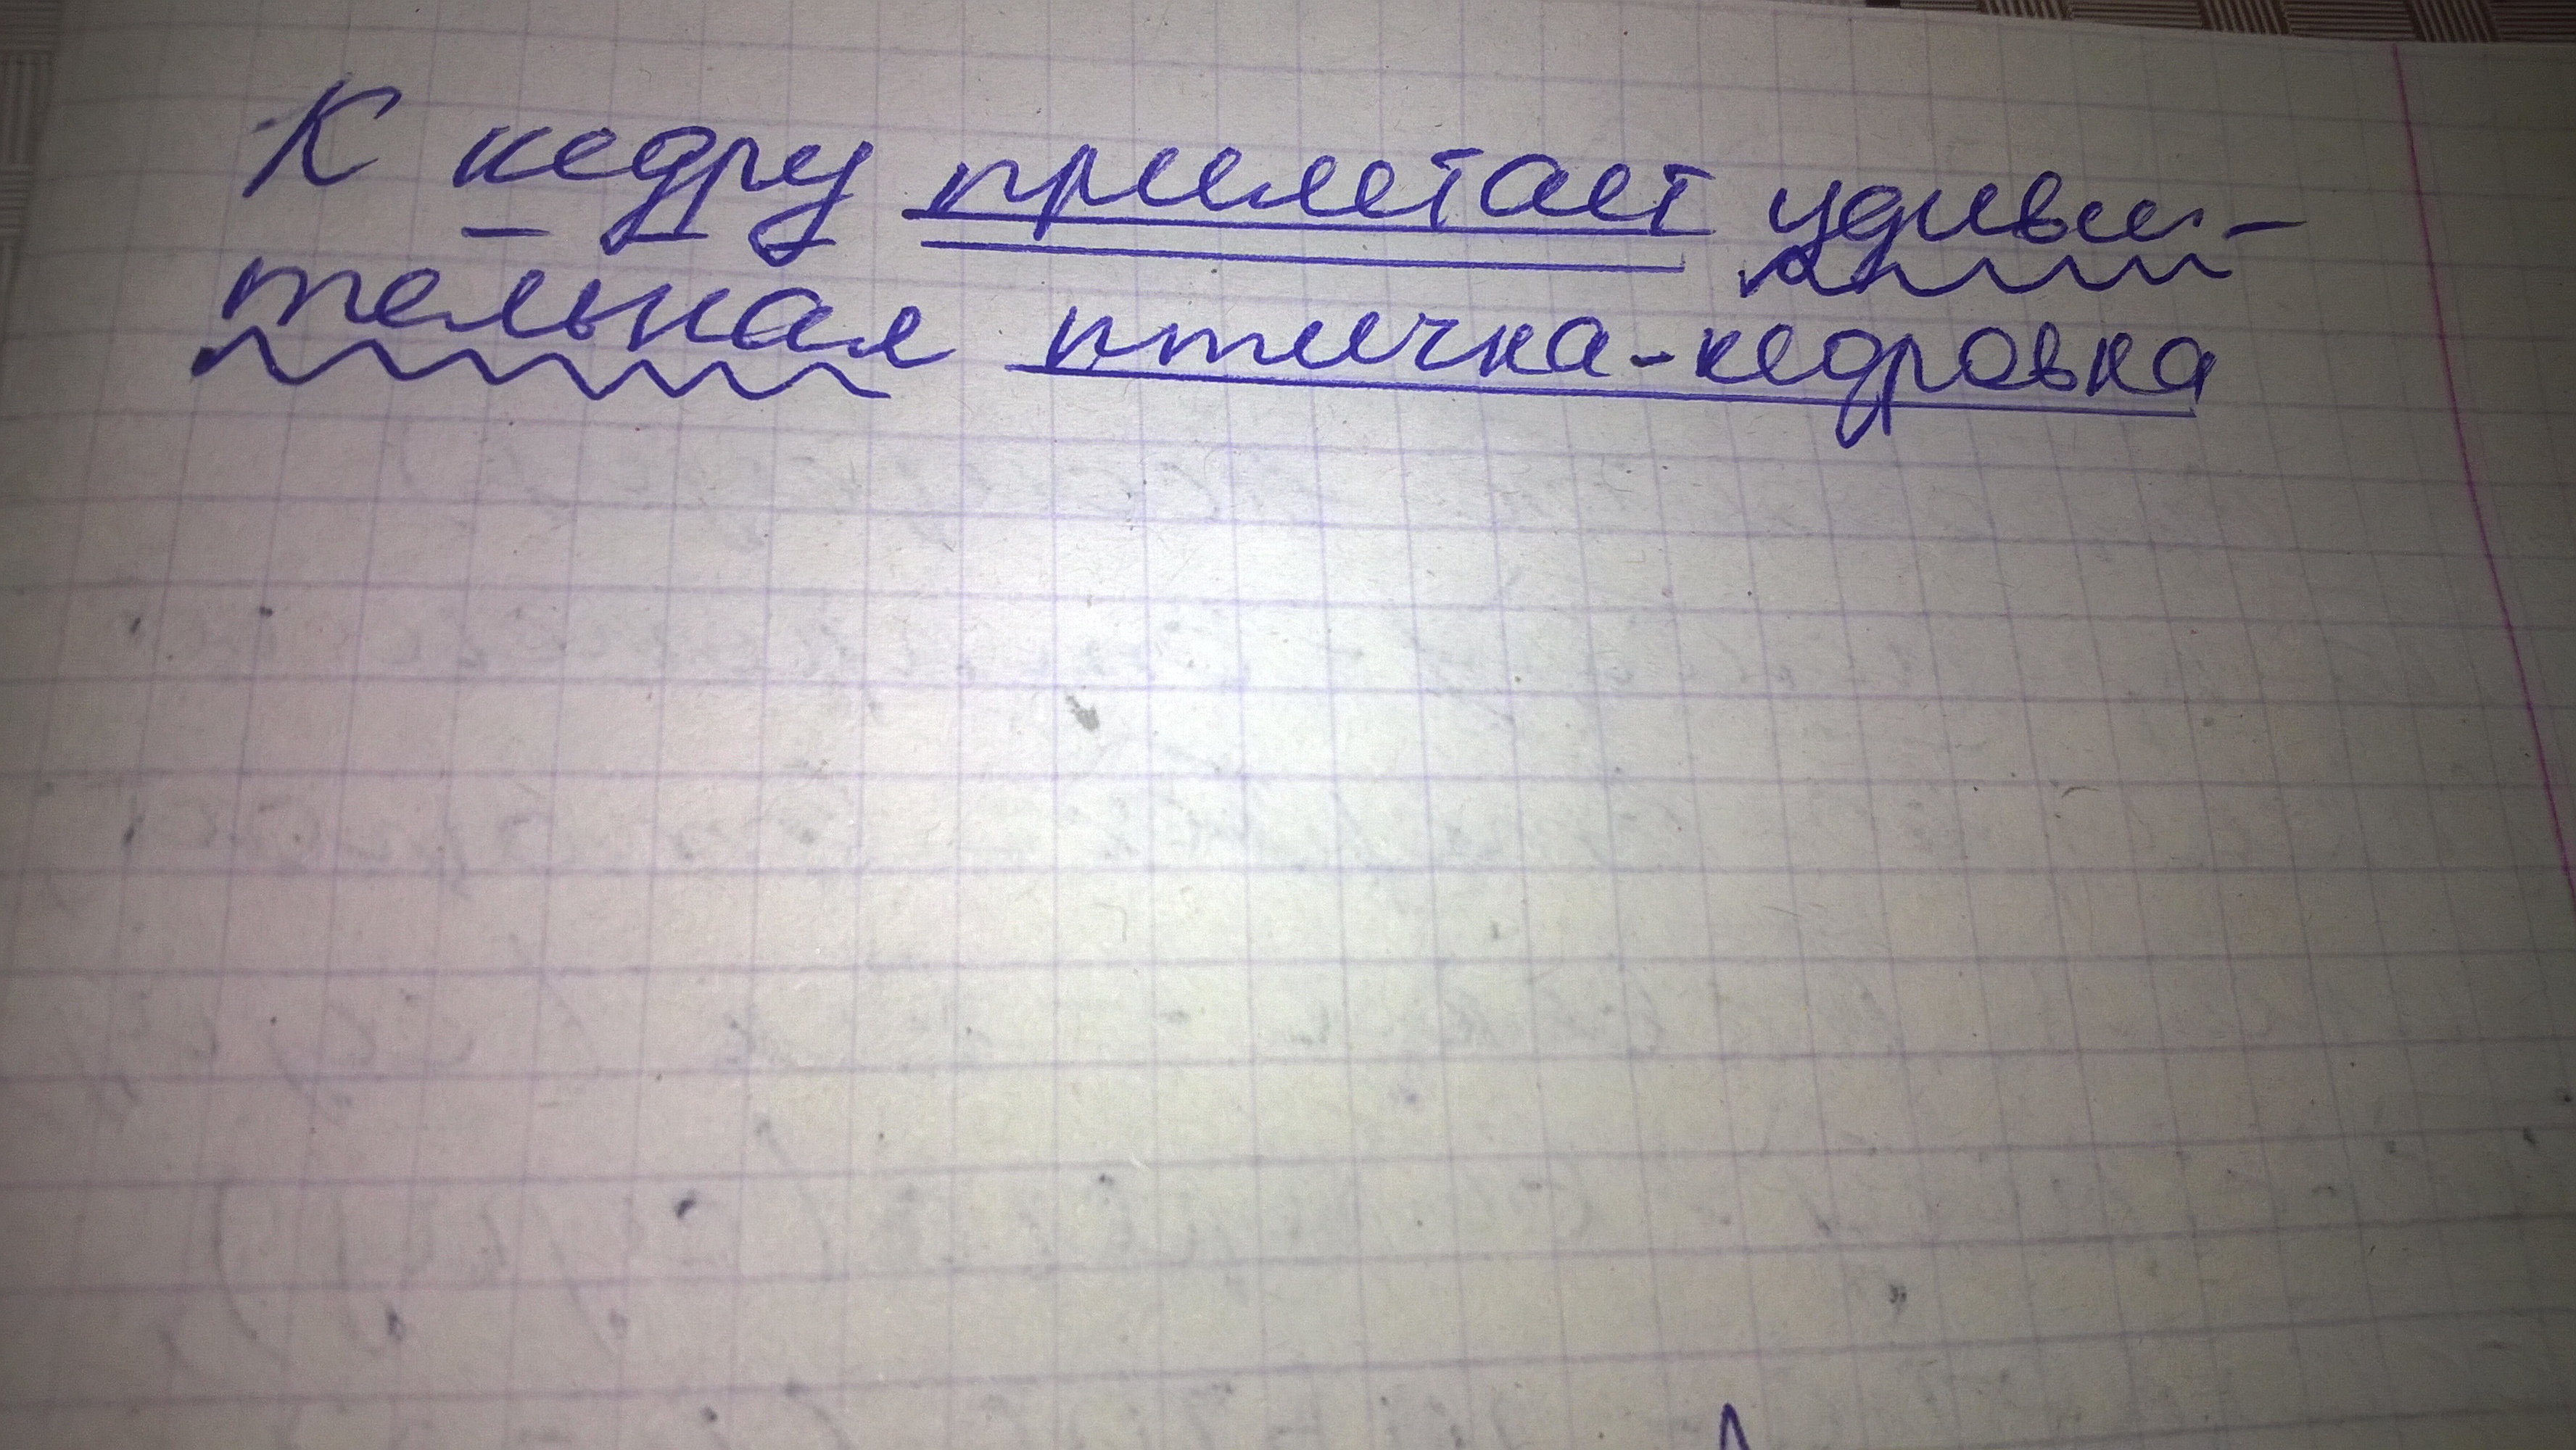 К кедру прилетает удиви-
тельная птичка-кедровка